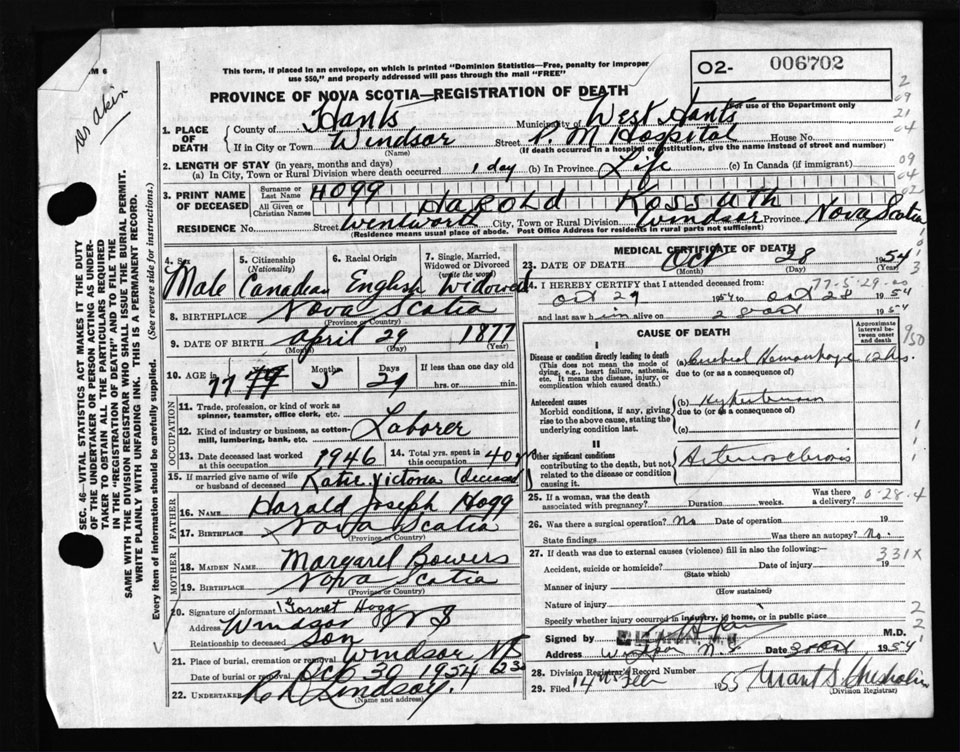 M 6
This form, if placed in an envelope, on which is printed "Dominion Statistics—Free, penalty for improper
use $50," and properly addressed will pass through the mail "FREE"
02- 006702
PROVINCE OF NOVA SCOTIA—REGISTRATION OF DEATH
For use of the Department only
1. PLACE OF DEATH
County of Hants Municipality of West Hants
If in City or Town Windsor Street P. M Hospital House No.
(Name) (If death occurred in a hospital or institution, give the name instead of street and number)
2. LENGTH OF STAY (in years, months and days)
(a) In City, Town or Rural Division where death occurred 1 day (b) In Province Life (c) In Canada (if immigrant)
3. PRINT NAME OF DECEASED
Surname or Last Name HOGG
All Given or Christian Names HAROLD KOSSUTH
RESIDENCE No. Street Wentworth City, Town or Rural Division Windsor Province Nova Scotia
(Residence means usual place of abode. Post Office Address for residents in rural parts not sufficient)
4. Sex Male
5. Citizenship (Nationality) Canadian
6. Racial Origin English
7. Single, Married, Widowed or Divorced (write the word) Widowed
8. BIRTHPLACE Nova Scotia
(Province or Country)
9. DATE OF BIRTH April 29 1877
(Month) (Day) (Year)
10. AGE in 77 Months 5 Days 29 If less than one day old
hrs. or min.
OCCUPATION
11. Trade, profession, or kind of work as
spinner, teamster, office clerk, etc.
12. Kind of industry or business, as cotton-
mill, lumbering, bank, etc. Laborer
13. Date deceased last worked
at this occupation 1946
14. Total yrs. spent in
this occupation 40
15. If married give name of wife
or husband of deceased Katie Victoria (deceased)
FATHER
16. NAME Harald Joseph Hogg
17. BIRTHPLACE Nova Scotia
(Province or Country)
MOTHER
18. MAIDEN NAME Margaret Bowers
19. BIRTHPLACE Nova Scotia
(Province or Country)
20. Signature of informant Garnet Hogg
Address Windsor N S
Relationship to deceased Son
21. Place of burial, cremation or removal Windsor NS
Date of burial or removal Oct 30 1954
22. UNDERTAKER Lindsay
(Name and address)
MEDICAL CERTIFICATE OF DEATH
23. DATE OF DEATH Oct 28 1954
(Month) (Day) (Year)
24. I HEREBY CERTIFY that I attended deceased from:
1954 to Oct 28 1954
and last saw him alive on 1954
CAUSE OF DEATH
Approximate interval between onset and death
I
Disease or condition directly leading to death
(This does not mean the mode of dying, e.g., heart failure, asthenia, etc. It means the disease, injury, or complication which caused death.)
(a) Cerebral Hemorrhage 12 hrs.
due to (or as a consequence of)
Antecedent causes
Morbid conditions, if any, giving rise to the above cause, stating the underlying condition last.
(b) Hypertension
due to (or as a consequence of)
(c)
II
Other significant conditions
contributing to the death, but not related to the disease or condition causing it.
Arteriosclerosis
25. If a woman, was the death
associated with pregnancy? Duration weeks. Was there a delivery?
26. Was there a surgical operation? No Date of operation 19
State findings Was there an autopsy? No.
27. If death was due to external causes (violence) fill in also the following:—
Accident, suicide or homicide? Date of injury 19
(State which)
Manner of injury
(How sustained)
Nature of injury
Specify whether injury occurred in industry, in home, or in public place
Signed by M.D.
Address Windsor N.S Date 30 Oct 1954
28. Division Registrar's Record Number
29. Filed 14 Feb 1955
(Division Registrar)
SEC. 46—VITAL STATISTICS ACT MAKES IT THE DUTY
OF THE UNDERTAKER OR PERSON ACTING AS UNDER-
TAKER TO OBTAIN ALL THE PARTICULARS REQUIRED
IN THE "REGISTRATION OF DEATH" AND TO FILE THE
SAME WITH THE DIVISION REGISTRAR WHO SHALL ISSUE THE BURIAL PERMIT.
WRITE PLAINLY WITH UNFADING INK. THIS IS A PERMANENT RECORD.
Every item of information should be carefully supplied. (See reverse side for instructions.)
Dr Akin
2
09
21
04
09
04
02
77-5-29-
950
0-28-4
331X
2
2